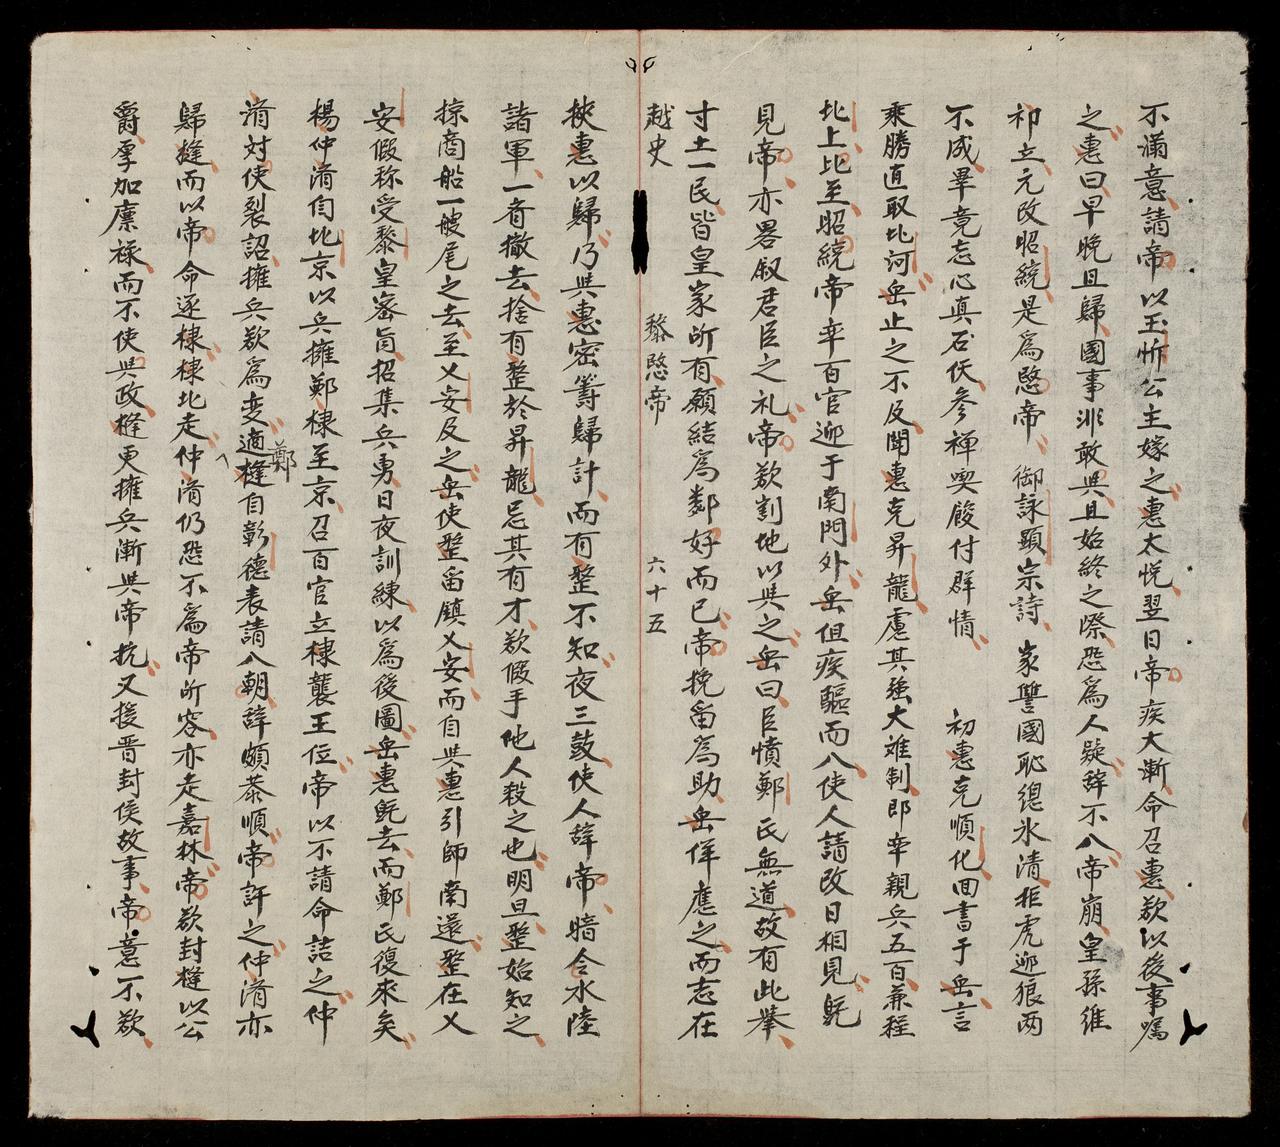 不滿意請帝以玉忻公主嫁之惠大悅翌日帝疾大漸命召惠欲以後事嘱
之惠曰早晚且歸國事非敢與且始終之際恐爲人疑辞不入帝崩皇孫維
祁立元改昭統是爲愍帝 御詠顕宗詩 家讐國恥總氷清拒虎迎狼两
不成畢竟忘心真石佚参禅喫飯付群情 初惠克順化囬書于岳言
乘勝直取北河岳止之不及聞惠克昇龍慮其強大难制即率親兵五百兼程
北上比至昭統帝率百官迎于南門外岳伹疾驅而入使人請改日相見既
見帝亦畧叙君臣之礼帝欲割地以與之岳曰臣憤鄭氏無道故有此擧
寸土一民皆皇家所有願結爲鄰好而已帝挽留爲助岳佯應之而志在
越史 黎愍帝 六十五
挾惠以歸乃與惠密籌歸計而有整不知夜三鼓使人辞帝暗令水陸
諸軍一斉撤去捨有整於昇龍忌其有才欲假手他人殺之也明旦整始知之
掠商船一艘尾之去至乂安及之岳使整留鎮乂安而自與惠引師南還整在乂
安假称受黎皇密旨招集兵勇日夜訓練以爲後圖岳惠既去而鄭氏復來矣
楊仲淯自北京以兵擁鄭棣至京召百官立棣襲王位帝以不請命詰之仲
淯対使裂詔擁兵欲爲变適鄭槰自彰德表請入朝辞頗恭順帝許之仲淯亦
歸槰而以帝命逐棣棣北走仲淯仍恐不爲帝所容亦走嘉林帝欲封槰以公
爵厚加廪禄而不使與政槰更擁兵漸與帝抗又援晋封侯故事帝意不欲